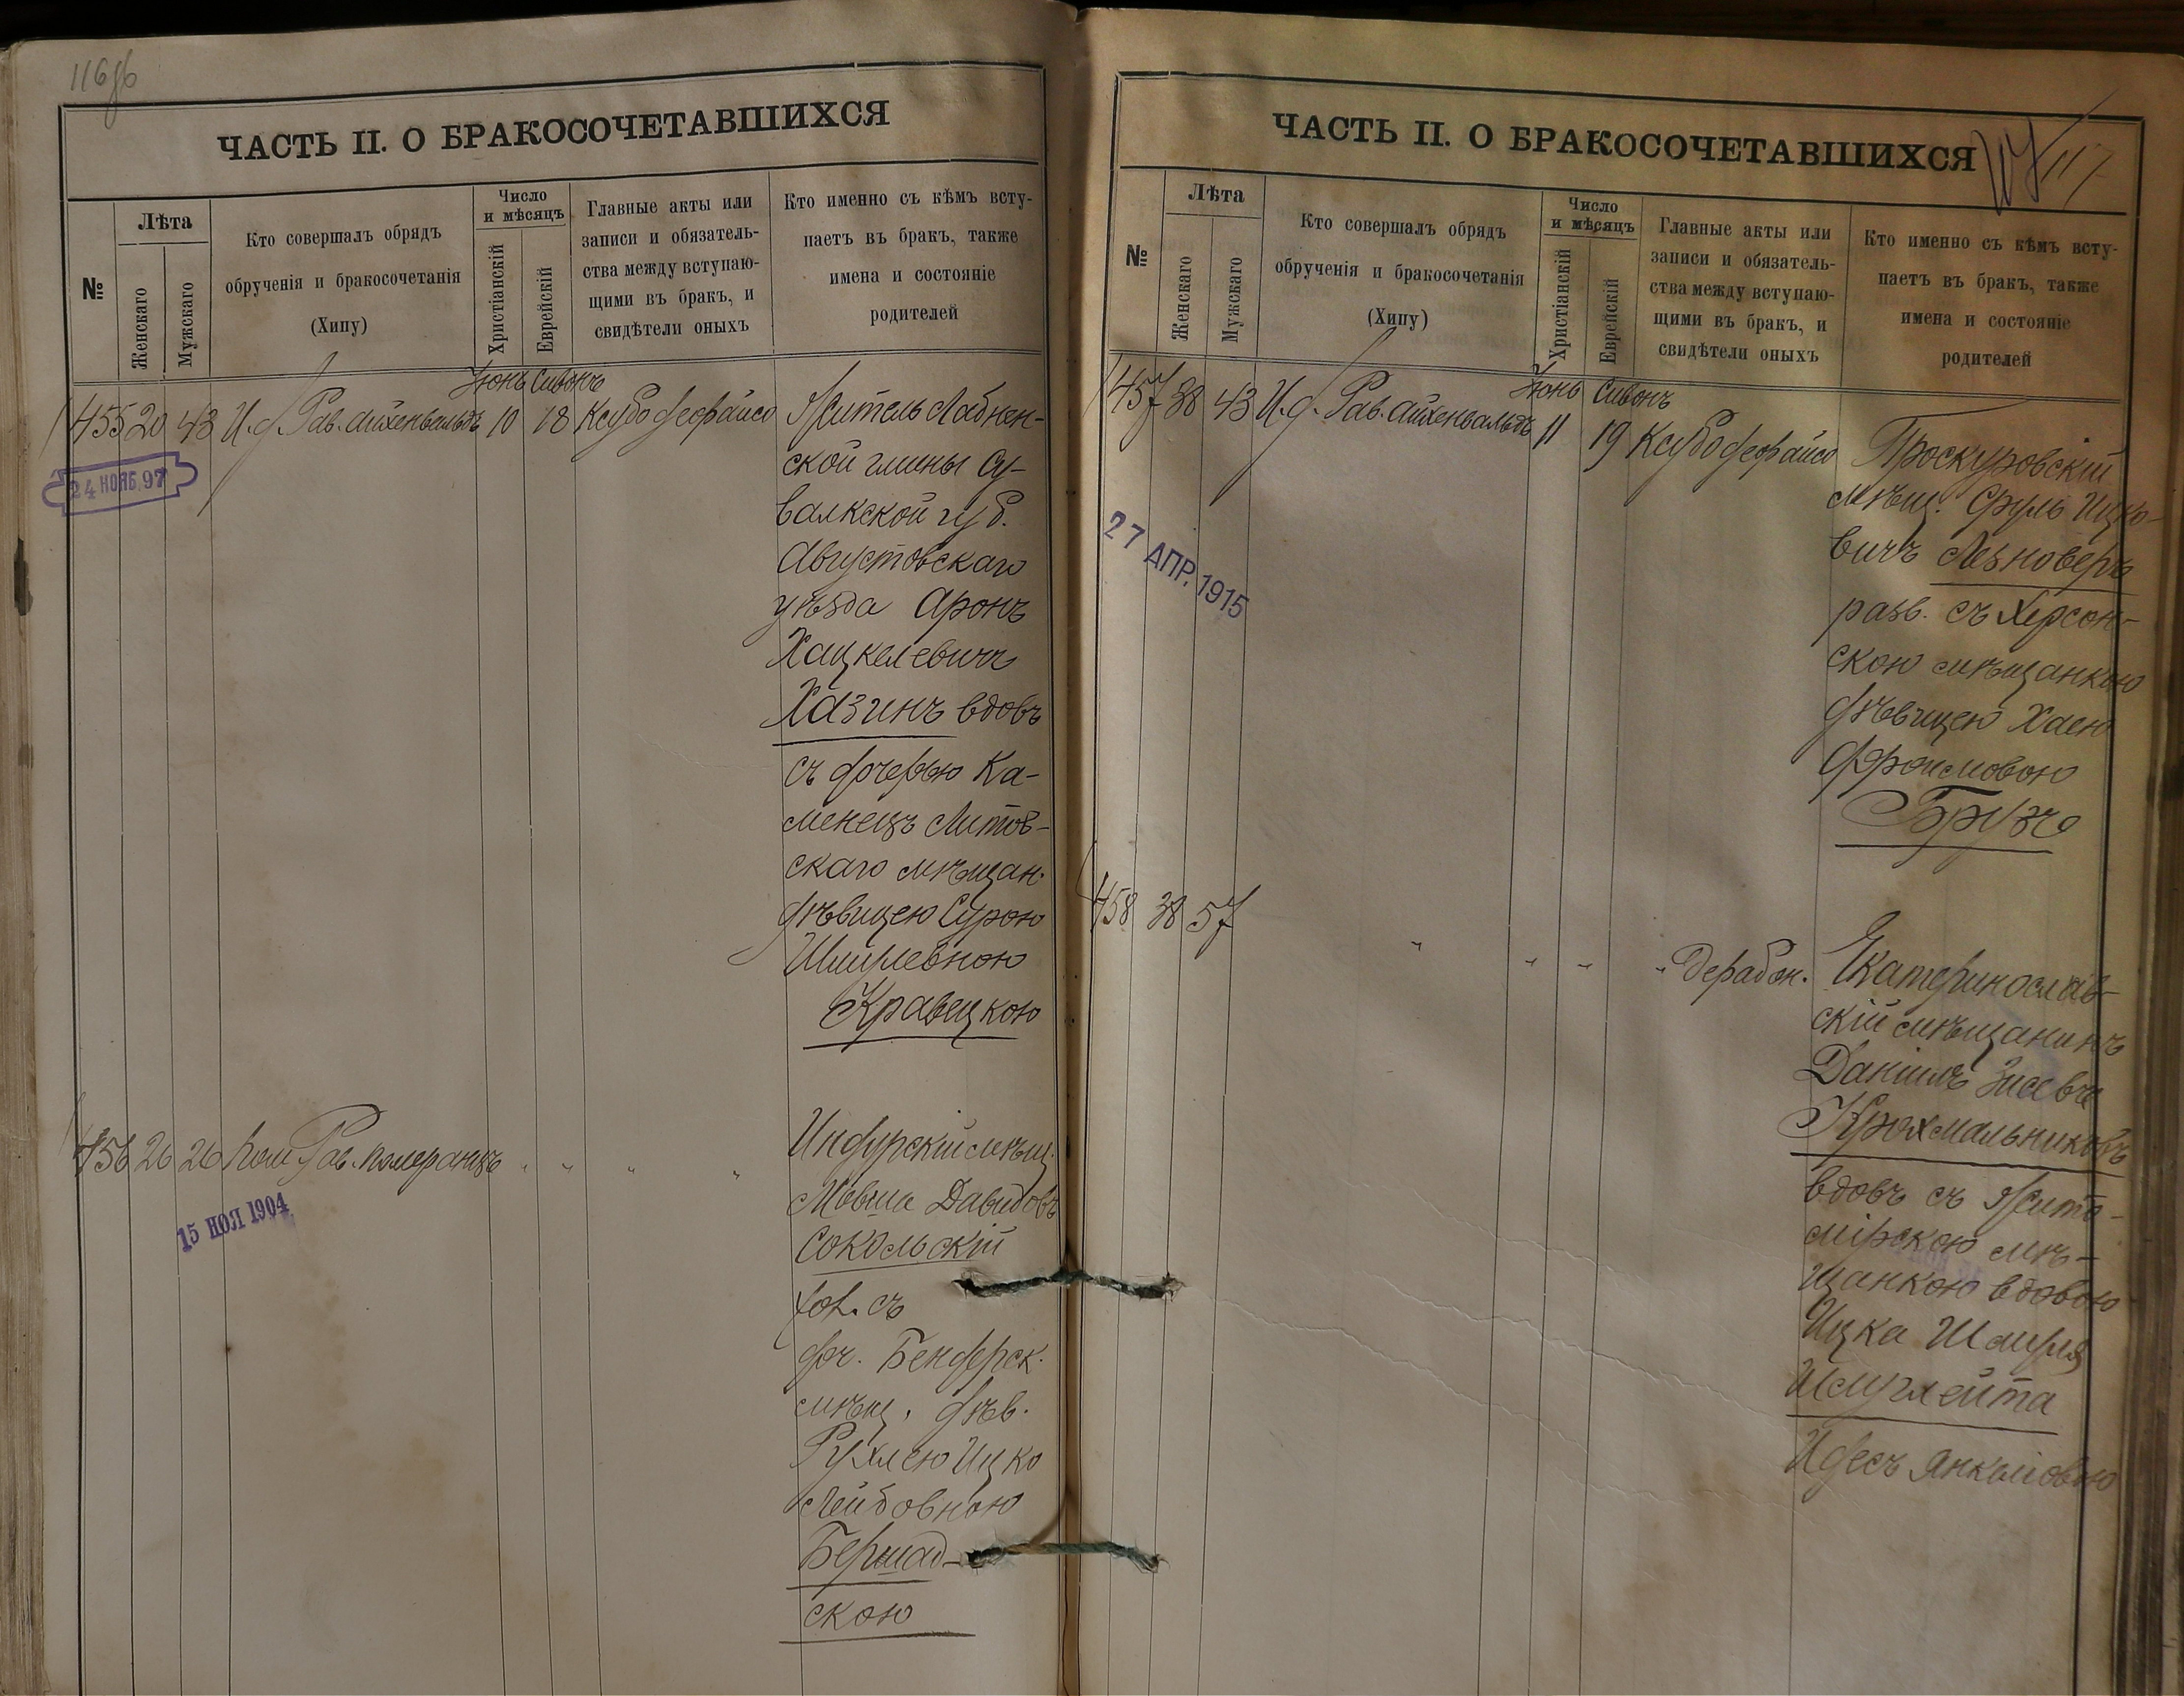 116об
ЧАСТЬ II. О БРАКОСОЧЕТАВШИХСЯ
№
Лѣта
Женскаго
Мужскаго
Кто совершалъ обрядъ
обрученія и бракосочетанія
(Хипу)
Число
и мѣсяцъ
Христіанскій
Еврейскій
Главные акты или
записи и обязатель-
ства между вступаю-
щими въ бракъ, и
свидѣтели оныхъ
Кто именно съ кѣмъ всту-
паетъ въ бракъ, также
имена и состояніе
родителей
Іюнь Сивонъ
455 20 43 И.д. Рав. Айхенвальдъ 10 18 Ксубо деорайсо Житель Лабнен-
ской гмины Су-
валкской губ.
Августовскаго
уѣзда Аронъ
Хацкелевичъ
Хазинъ вдовъ
съ дочерью Ка-
менецъ Литов-
скаго мѣщан.
дѣвицею Сурою
Шмулевною
Кравецкою
24 НОЯБ. 97
456 26 26 Пом. Рав. Померанцъ " " " " Индурскій мѣщ.
Мовша Давидовъ
Сокольскій
хол. съ
доч. Бендерск.
мѣщ. дѣв.
Рухлею Ицко
Лейбовною
Бершад-
скою
15 НОЯ 1904
ЧАСТЬ II. О БРАКОСОЧЕТАВШИХСЯ
117
№
Лѣта
Женскаго
Мужскаго
Кто совершалъ обрядъ
обрученія и бракосочетанія
(Хипу)
Число
и мѣсяцъ
Христіанскій
Еврейскій
Главные акты или
записи и обязатель-
ства между вступаю-
щими въ бракъ, и
свидѣтели оныхъ
Кто именно съ кѣмъ всту-
паетъ въ бракъ, также
имена и состояніе
родителей
Іюнь Сивонъ
457 38 43 И.д. Рав. Айхенвальдъ 11 19 Ксубо деорайсо Проскуровскій
мѣщ. Сруль Ицко-
вичъ Лезноверъ
разв. съ Херсон-
скою мѣщанкою
дѣвицею Хаею
Фроимовою
27 АПР. 1915
458 38 57 " " " " Дерабон. Екатеринослав-
скій мѣщанинъ
Даніилъ Зисевъ
Крохмальниковъ
вдовъ съ Жито-
мірскою мѣ-
щанкою вдовою
Ицка Шмуля
Шмуглейта
Идесъ Янкелівою